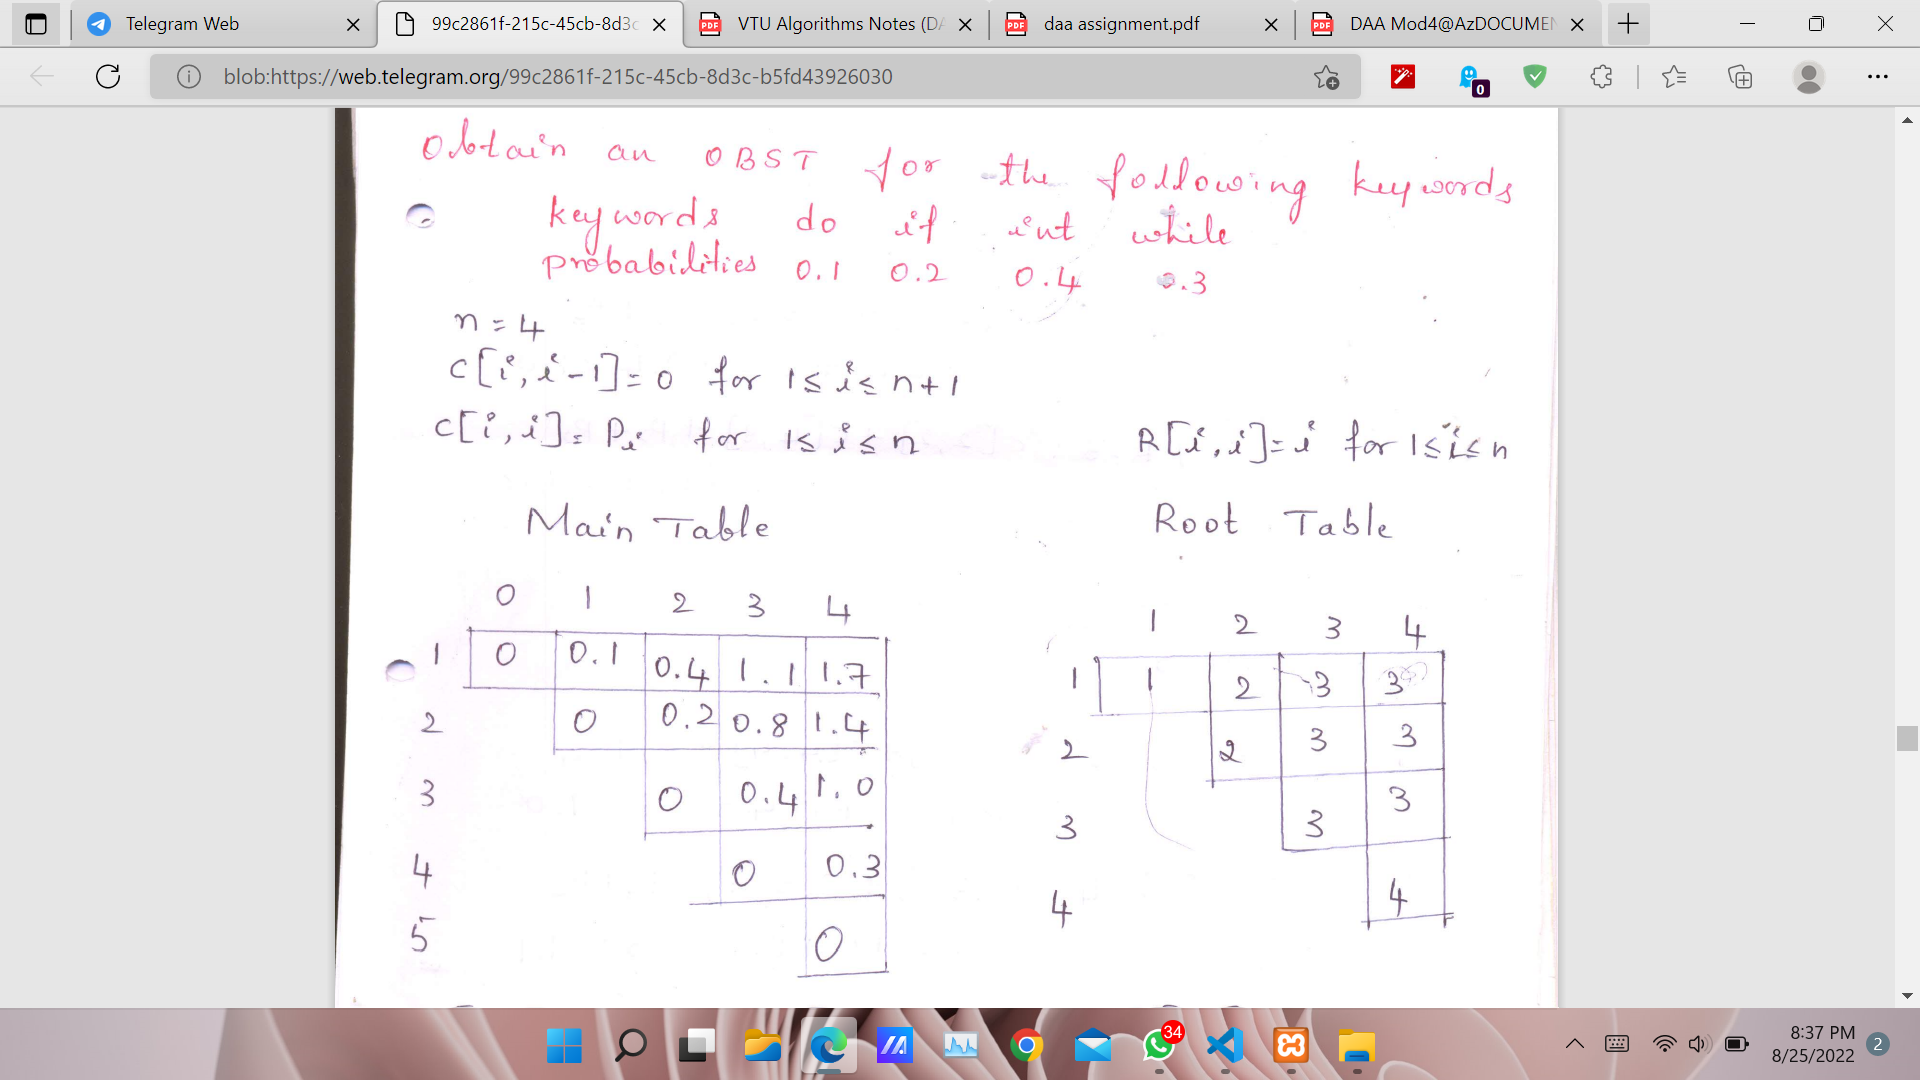 Telegram Web
99c2861f-215c-45cb-8d3c
VTU Algorithms Notes (DA
daa assignment.pdf
DAA Mod4@AzDOCUMEN
blob:https://web.telegram.org/99c2861f-215c-45cb-8d3c-b5fd43926030
0
Obtain an OBST for the following keywords
keywords do if int while
probabilities 0.1 0.2 0.4 0.3
n = 4
C[i, i-1] = 0 for 1 ≤ i ≤ n+1
C[i, i] = Pi for 1 ≤ i ≤ n R[i, i] = i for 1 ≤ i ≤ n
Main Table Root Table
0 1 2 3 4
1 0 0.1 0.4 1.1 1.7
2 0 0.2 0.8 1.4
3 0 0.4 1.0
4 0 0.3
5 0
1 2 3 4
1 1 2 3 3
2 2 3 3
3 3 3
4 4
34
8:37 PM
8/25/2022
2